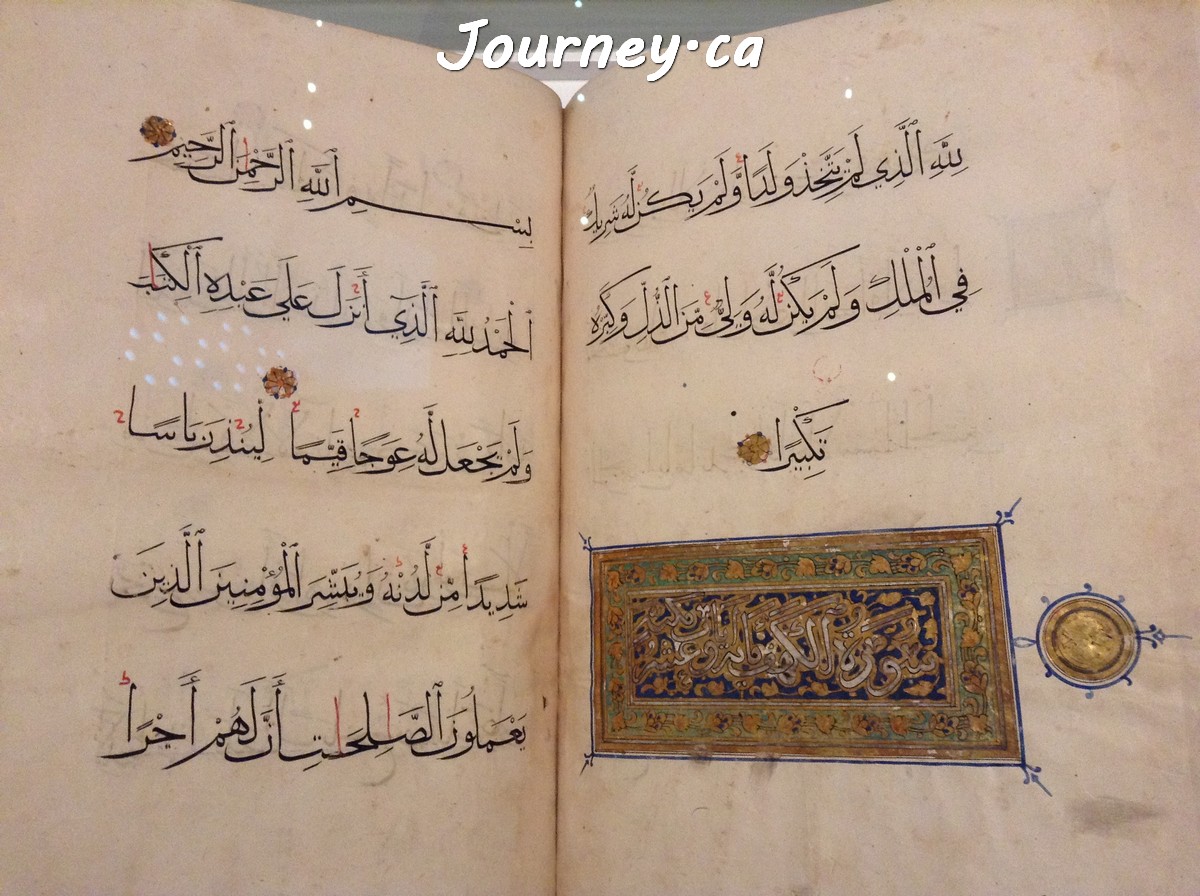 Journey.ca
لِلَّهِ ٱلَّذِي لَمْ يَتَّخِذْ وَلَدًا وَلَمْ يَكُنْ لَهُ شَرِيكٌ
فِي ٱلْمُلْكِ وَلَمْ يَكُنْ لَهُ وَلِيٌّ مِّنَ ٱلذُّلِّ وَكَبِّرْهُ
تَكْبِيرًا
سورة الكهف مائة وعشر
بِسْمِ ٱللَّهِ ٱلرَّحْمٰنِ ٱلرَّحِيمِ
ٱلْحَمْدُ لِلَّهِ ٱلَّذِي أَنْزَلَ عَلَى عَبْدِهِ ٱلْكِتٰبَ
وَلَمْ يَجْعَل لَّهُ عِوَجًا قَيِّمًا لِيُنْذِرَ بَاسًا
شَدِيدًا مِّن لَّدُنْهُ وَيُبَشِّرَ ٱلْمُؤْمِنِينَ ٱلَّذِينَ
يَعْمَلُونَ ٱلصَّٰلِحَٰتِ أَنَّ لَهُمْ أَجْرًا